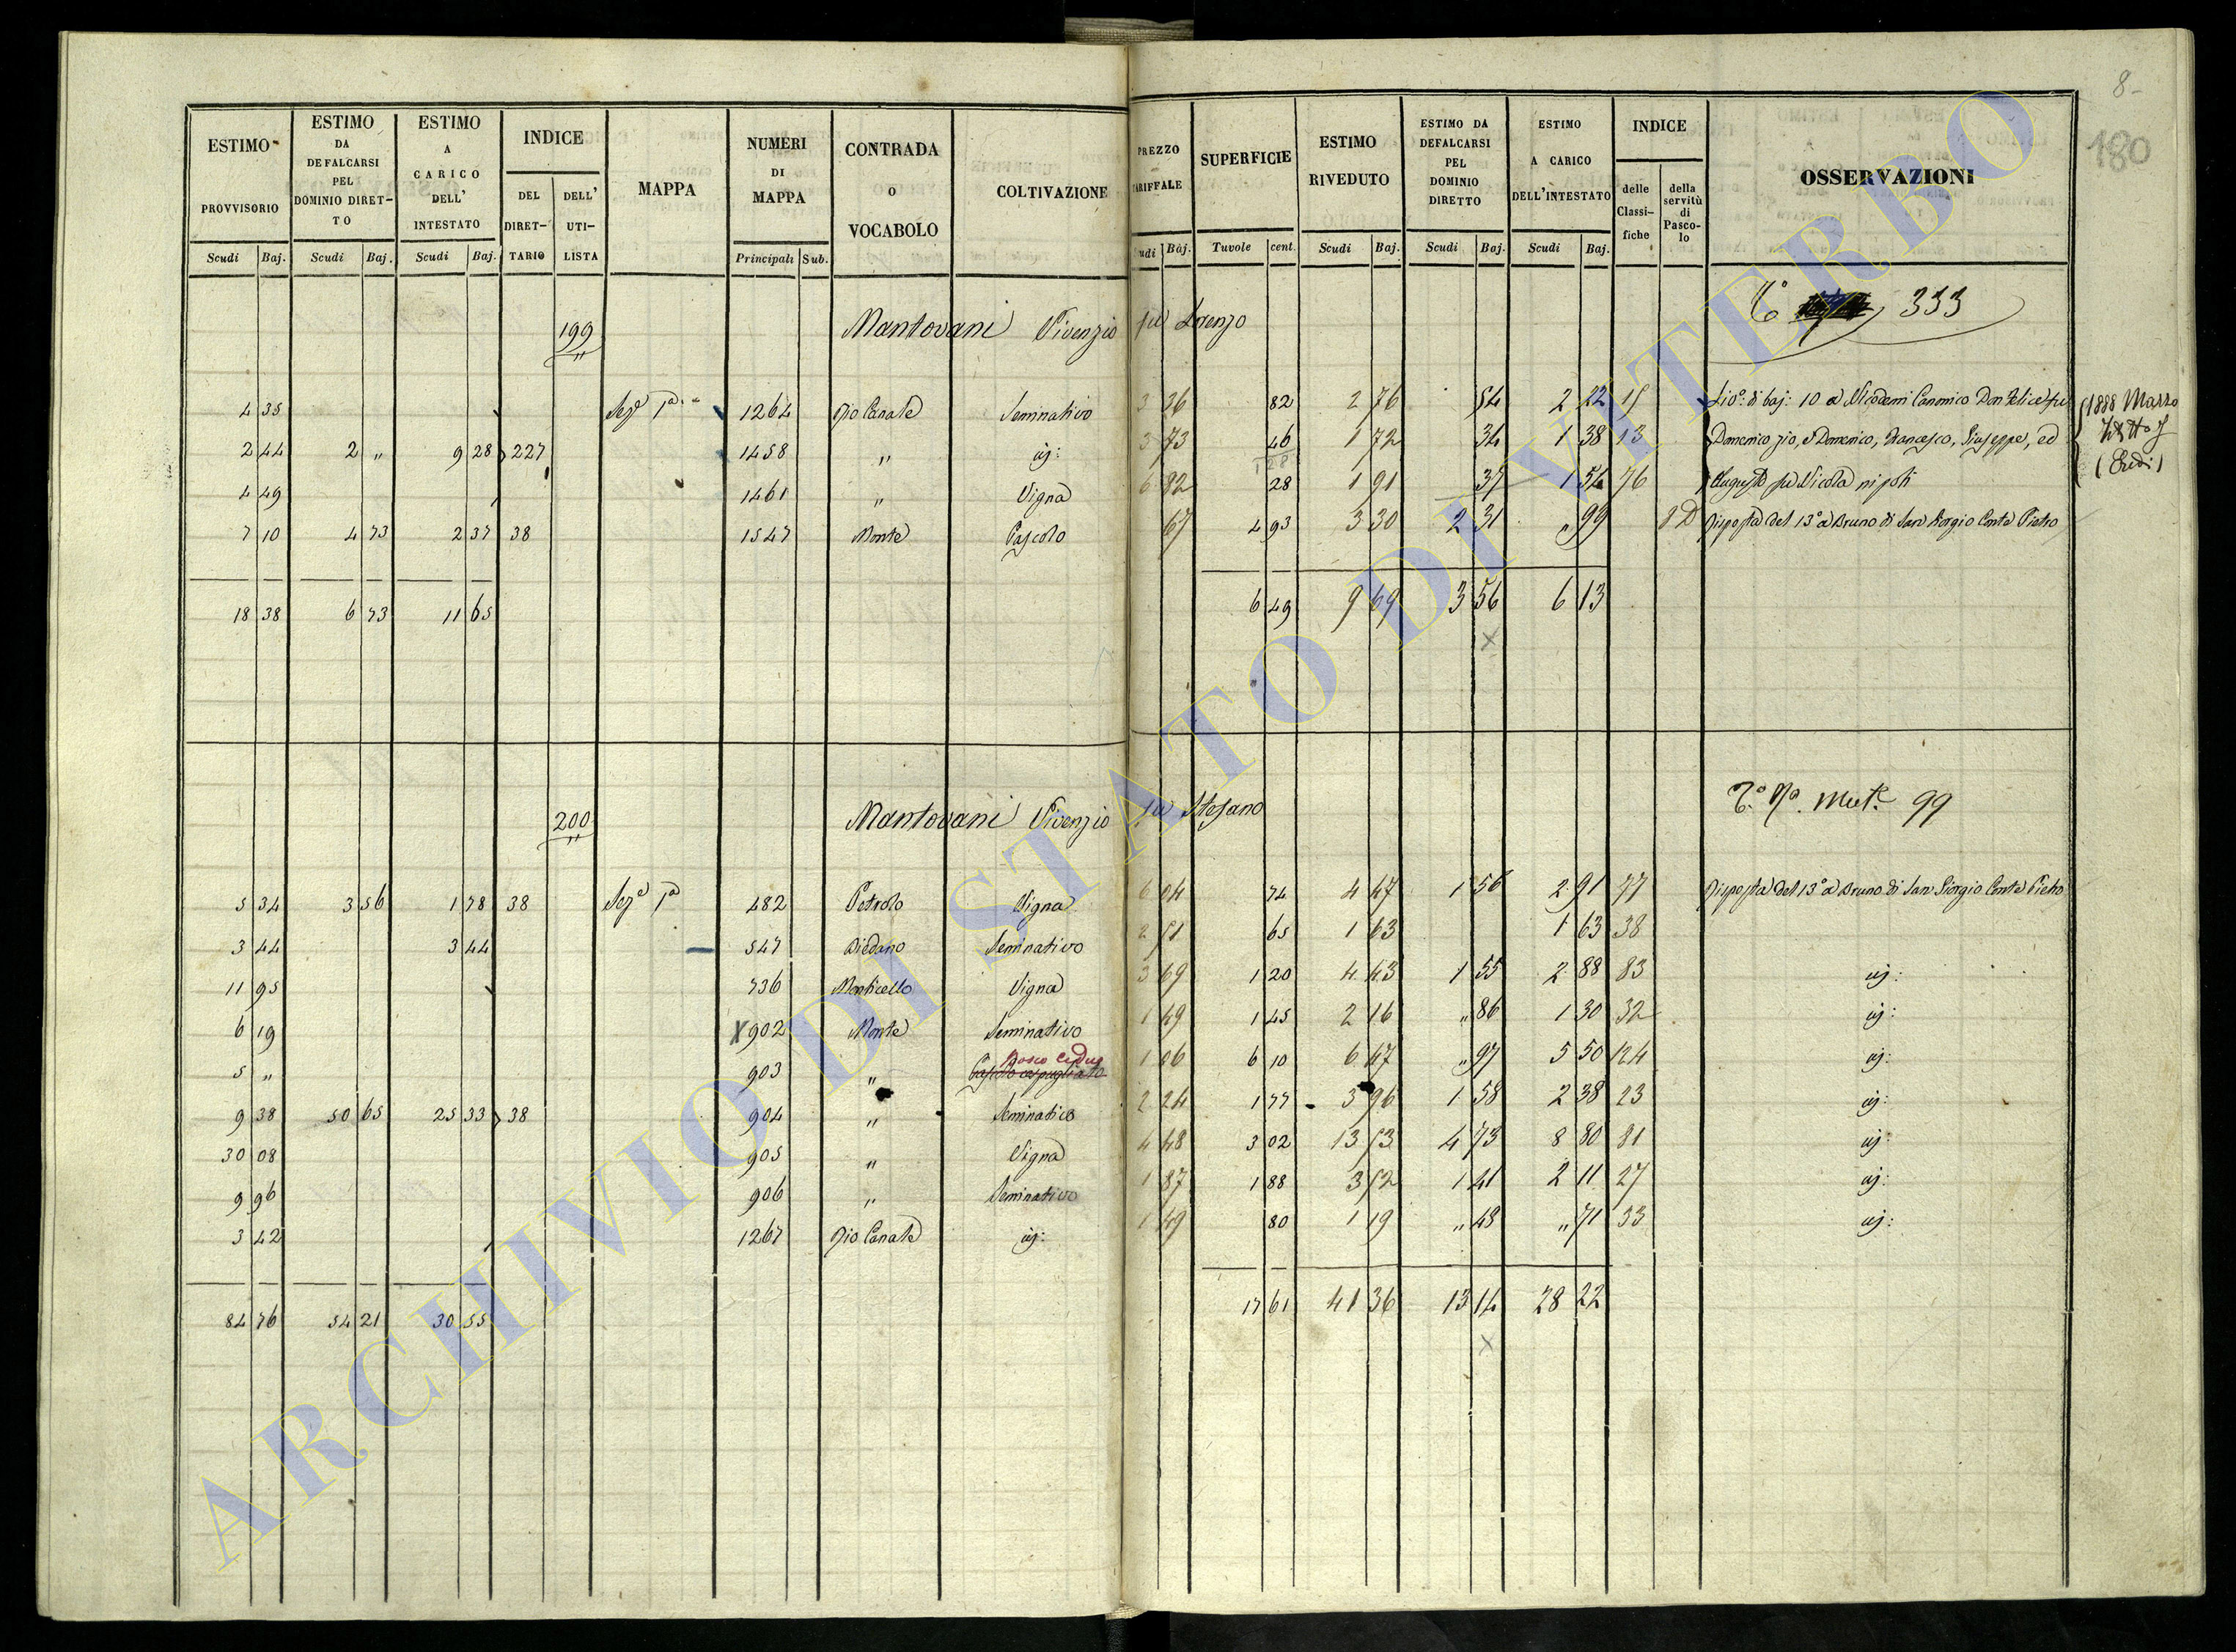 8-
180
ESTIMO PROVVISORIO Scudi Baj.
ESTIMO DA DEFALCARSI PEL DOMINIO DIRET-TO Scudi Baj.
ESTIMO A CARICO DELL' INTESTATO Scudi Baj.
INDICE DEL DIRET-TARIO DELL' UTI-LISTA
MAPPA
NUMERI DI MAPPA Principali Sub.
CONTRADA O VOCABOLO
COLTIVAZIONE
PREZZO TARIFFALE udi Baj.
SUPERFICIE Tavole cent.
ESTIMO RIVEDUTO Scudi Baj.
ESTIMO DA DEFALCARSI PEL DOMINIO DIRETTO Scudi Baj.
ESTIMO A CARICO DELL'INTESTATO Scudi Baj.
INDICE delle Classi-fiche della servitù di Pasco-lo
OSSERVAZIONI
199 Mantovani Vivenzio fu Lorenzo 333
4 35 Seze 1a 1264 Rio Canale Seminativo 3 36 82 2 76 54 2 22 15 Lio: di baj: 10 a Nicodemi Canonico Don Felice fu
2 44 2 " 9 28 227 1458 " id: 3 73 46 1 72 34 1 38 13 Domenico zio, e Domenico, Francesco, Giuseppe, ed
128
4 49 1461 " Vigna 6 82 28 1 91 37 1 54 76 Augusto fu Nicola nipoti
1888 Marzo
(Eredi)
7 10 4 73 2 37 38 1547 Monte Pascolo 67 4 93 3 30 2 31 " 99 1 D Risposta del 13o a Bruno di San Giorgio Conte Pietro
18 38 6 73 11 65 6 49 9 69 3 56 6 13
X
200 Mantovani Vivenzio fu Stefano 99
5 34 3 56 1 78 38 Seze 1a 482 Petrolo Vigna 6 04 74 4 47 1 56 2 91 77 Risposta del 13o a Bruno di San Giorgio Conte Pietro
3 44 3 44 547 Diedano Seminativo 2 51 65 1 63 1 63 38
11 95 736 Monticello Vigna 3 69 1 20 4 43 1 55 2 88 83 id:
6 19 X 902 Monte Seminativo 1 49 1 45 2 16 " 86 1 30 32 id:
Bosco Ceduo
5 " 903 " Pascolo cespugliato 1 06 6 10 6 47 " 97 5 50 124 id:
9 38 50 65 25 33 38 904 " Seminativo 2 24 1 77 3 96 1 58 2 38 23 id:
30 08 905 " Vigna 4 48 3 02 13 53 4 73 8 80 81 id:
9 96 906 " Seminativo 1 87 1 88 3 52 1 41 2 11 27 id:
3 42 1267 Rio Canale id: 1 49 80 1 19 " 48 " 71 33 id:
84 76 54 21 30 55 17 61 41 36 13 14 28 22
X
ARCHIVIO DI STATO DI VITERBO